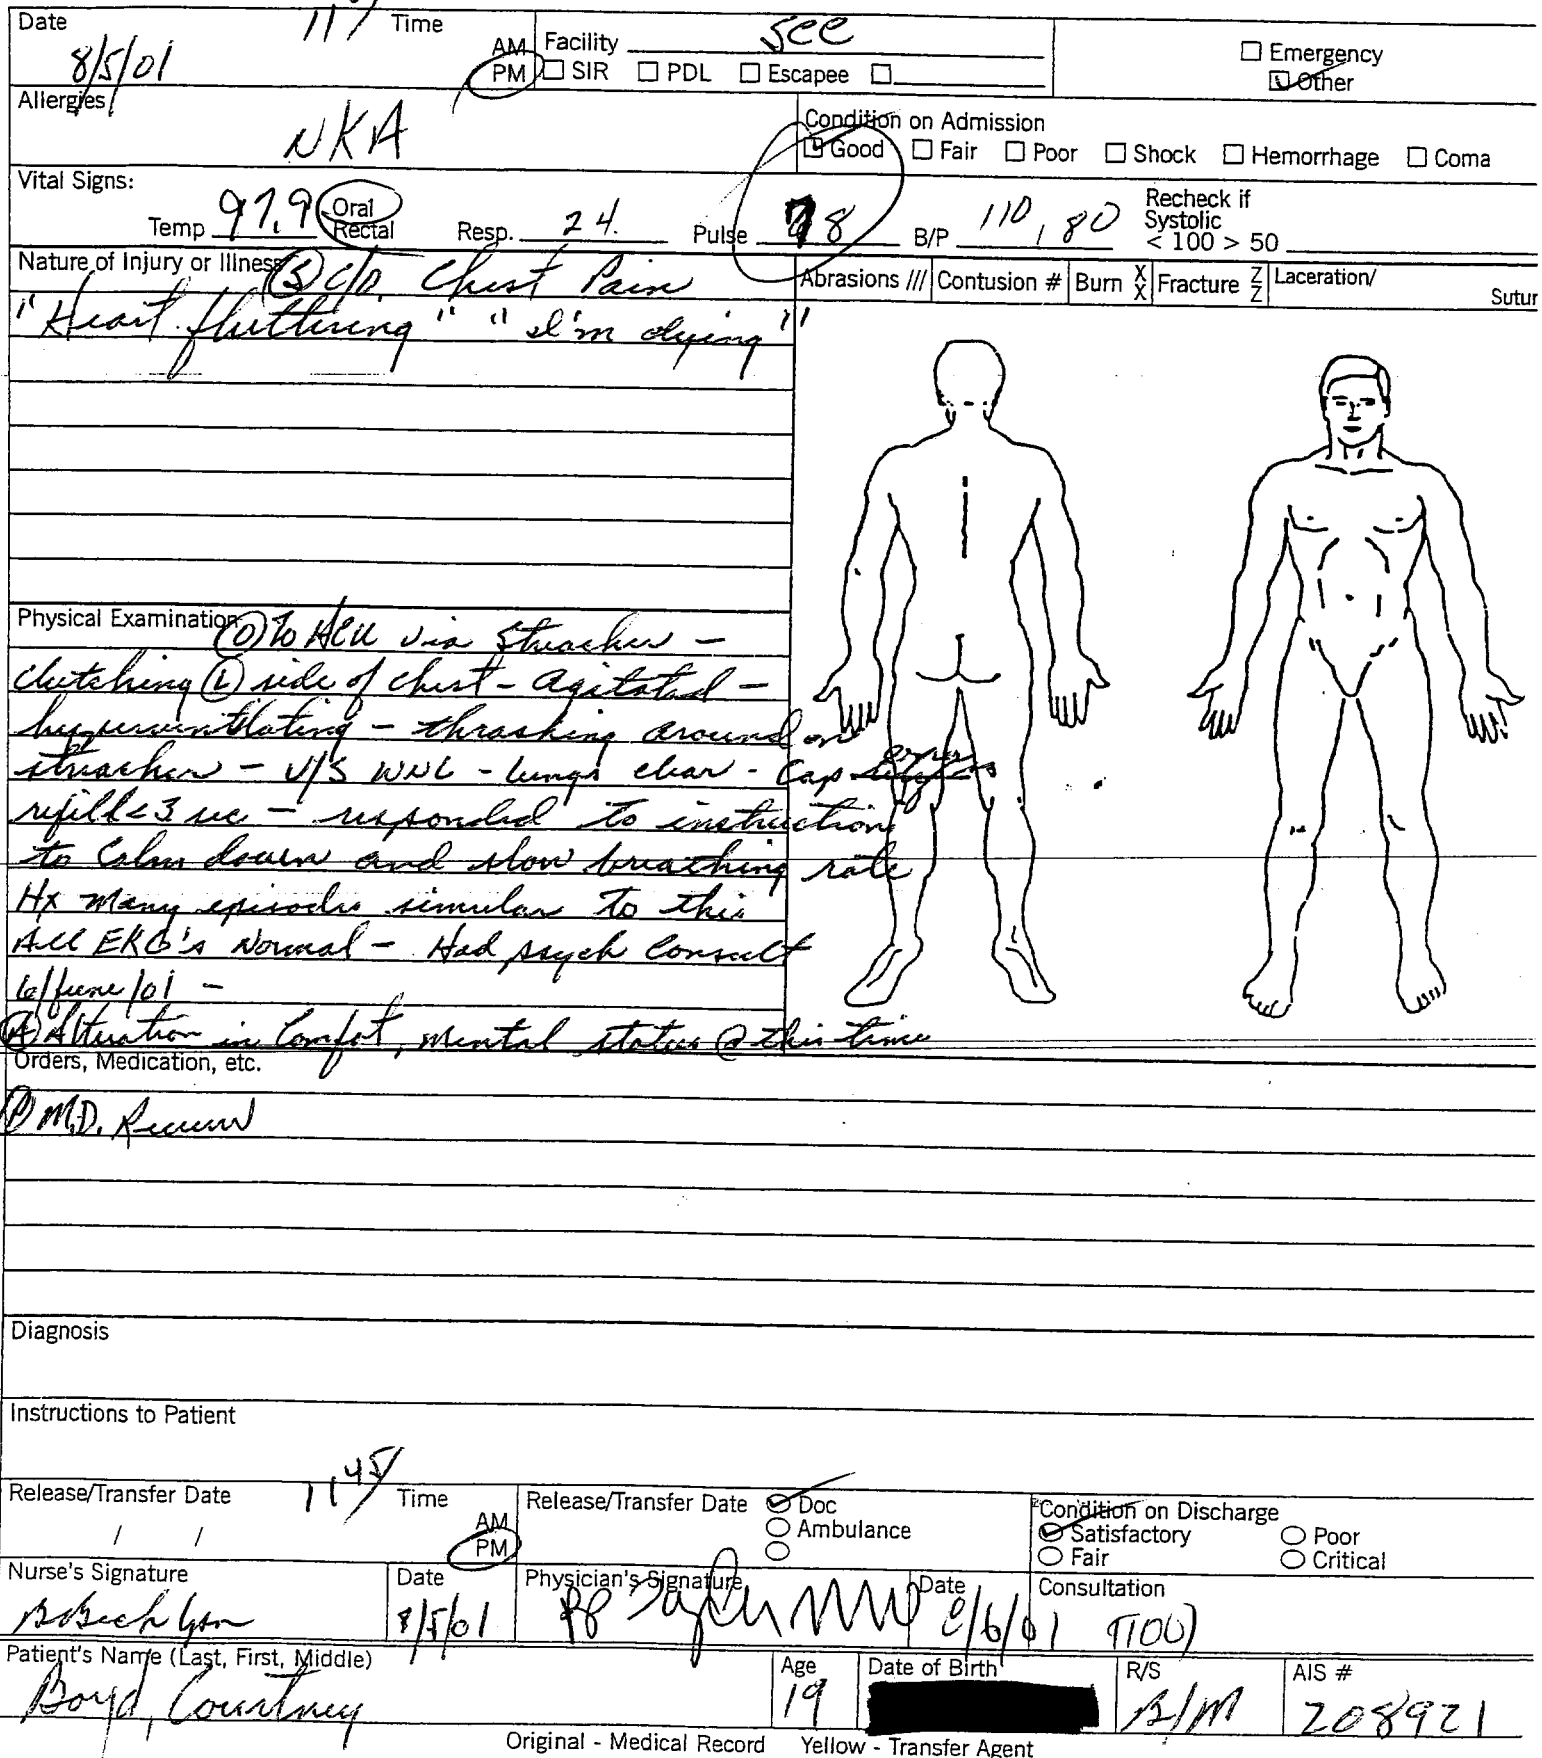 Date 11 Time
8/5/01 AM PM
Facility SCC
☐ SIR ☐ PDL ☐ Escapee ☐
☐ Emergency
☑ Other
Allergies
NKA
Condition on Admission
☑ Good ☐ Fair ☐ Poor ☐ Shock ☐ Hemorrhage ☐ Coma
Vital Signs:
Temp 97.9 Oral Rectal Resp. 24. Pulse 78 B/P 110 / 80
Recheck if
Systolic
< 100 > 50
Nature of Injury or Illness (S) c/o. Chest Pain
"Heart fluttering" "I'm dying"
Abrasions /// Contusion # Burn X X Fracture Z Z Laceration/
Sutur
Physical Examination (O) To HCU via Stretcher –
clutching (L) side of chest – agitated –
hyperventilating – thrashing around on
stretcher – V/S WNL – lungs clear – Cap
refill < 3 sec – responded to instruction
to Calm down and slow breathing rate
Hx many episodes similar to this
All EKG's Normal – Had psych Consult
6/June/01 –
(A) Alteration in Comfort, mental status @ this time
Orders, Medication, etc.
(P) M.D. Review
Diagnosis
Instructions to Patient
Release/Transfer Date 11 45 Time
/ / AM PM
Release/Transfer Date ☑ Doc
○ Ambulance
○
Condition on Discharge
☑ Satisfactory ○ Poor
○ Fair ○ Critical
Nurse's Signature
Date
8/5/01
Physician's Signature
Date
8/6/01
Consultation
Patient's Name (Last, First, Middle)
Boyd, Courtney
Age
19
Date of Birth
R/S
B/M
AIS #
208921
Original - Medical Record Yellow - Transfer Agent